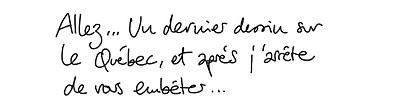 Allez... Un dernier dessin sur
le Québec, et après j'arrête
de vous embêter...